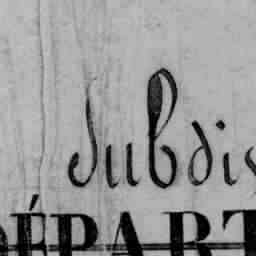 Subdis
DÉPART